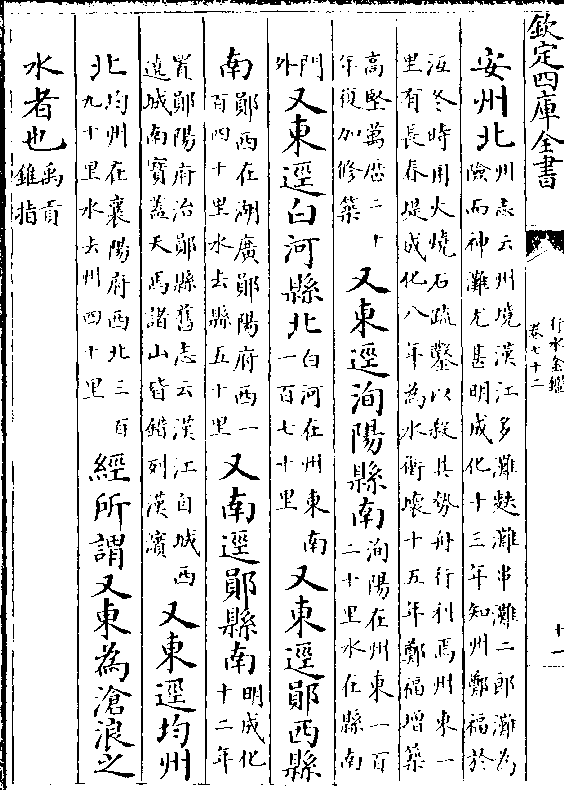 欽定四庫全書
行水金鑑
卷七十二
十一
安州北
州志云州境漢江多灘麩灘串灘二郎灘為
險而神灘尤甚明成化十三年知州鄭福於
沍冬時用火燒石疏鑿以殺其勢舟行利焉州東一
里有長春堤成化八年為水衝壞十五年鄭福增築
高堅萬厯二十
年復加修築
又東逕洵陽縣南
洵陽在州東一百
二十里水在縣南
門
外
又東逕白河縣北
白河在州東南
一百七十里
又東逕鄖西縣
南
鄖西在湖廣鄖陽府西一
百四十里水去縣五十里
又南逕鄖縣南
明成化
十二年
置鄖陽府治鄖縣舊志云漢江自城西
遶城南寳蓋天馬諸山皆錯列漢濱
又東逕均州
北
均州在襄陽府西北三百
九十里水去州四十里
經所謂又東為滄浪之
水者也
禹貢
錐指